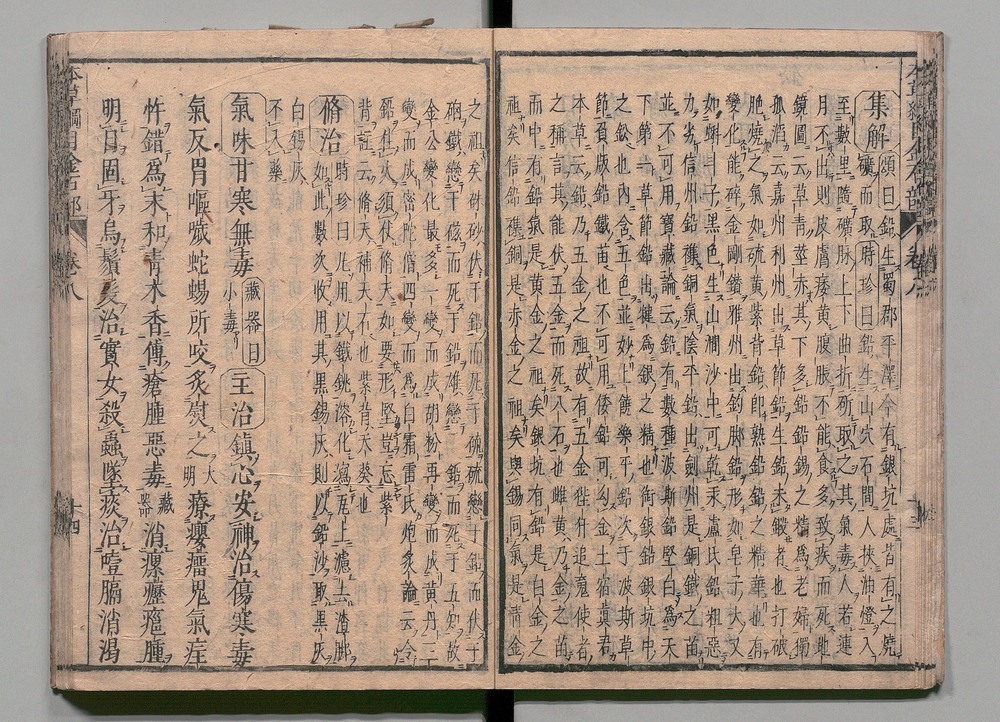 集解 頌曰鉛生蜀郡平澤今有銀坑處皆有之燒
礦而取時珍曰鉛生山穴石間人挾油燈入
至數里隨礦脉上下曲折斫取之其氣毒人若連
月不出則皮膚痿黄腹脹不能食多致疾而死地
鏡圖云草青莖赤其下多鉛鉛錫之精爲老婦獨
孤滔云嘉州利州出草節鉛生鉛未鍜者也打破
脆燒之氣如硫黄紫背鉛即熟鉛鉛之精華也有
變化能碎金剛鑚雅州出釣脚鉛形如皂子大又
如蝌蚪子黒色生山澗沙中可乾汞盧氏鉛粗惡
力劣信州鉛雜銅氣陰平鉛出劍州是銅鐵之苗
並不可用寶藏論云鉛有數種波斯鉛堅白爲天
下第一草節鉛出犍爲銀之精也衘銀鉛銀坑中
之鉛也内含五色並妙上饒樂平鉛次于波斯草
節負版鉛鐵苗也不可用倭鉛可勾金土宿眞君
本草云鉛乃五金之祖故有五金狴犴追魂使者
之稱言其能伏五金而死八石也雌黄乃金之苗
而中有鉛氣是黄金之祖矣銀坑有鉛是白金之
祖矣信鉛雜銅是赤金之祖矣與錫同氣是青金
之祖矣硃砂伏于鉛而死于硫硫戀于鉛而伏于
硇鐵戀于磁而死于鉛雄戀于鉛而死于五加故
金公變化最多一變而成胡粉再變而成黄丹三
變而成密陀僧四變而爲白霜雷氏炮炙論云令
鉛住火須仗修天如要形堅豈忘紫
背註云修天補天石也紫背天葵也
脩治 時珍曰凡用以鐵銚溶化瀉瓦上濾去渣脚
如此數次收用其黒錫灰則以鉛沙取黒灰
白錫灰
不入藥
氣味甘寒無毒藏器曰小毒主治鎮心安神治傷寒毒
氣反胃嘔噦蛇蜴所咬炙熨之大明療癭瘤鬼氣疰
忤錯爲末和青木香傅瘡腫惡毒藏器消瘰癧癰腫
明目固牙烏鬚髪治實女殺蟲墜痰治噎膈消渴